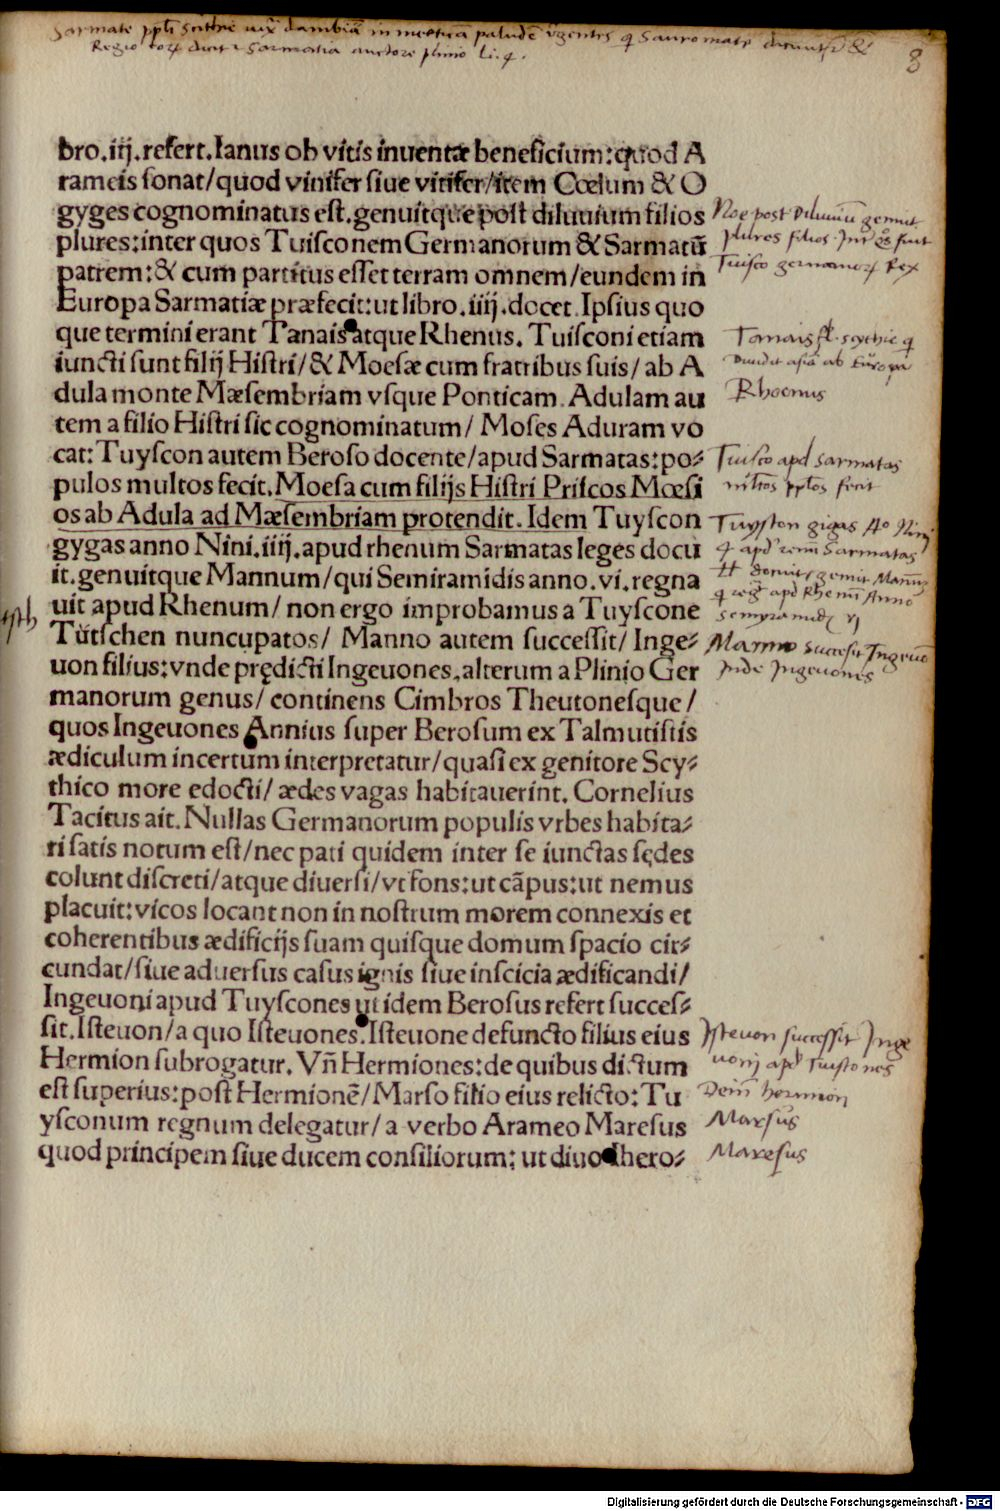 Sarmate ppli Scithie
Regio auctore plinio Li. 4.
8
bro.iij.refert.Ianus ob vitis inuentæ beneficium:quod A
rameis sonat/quod vinifer siue vitifer/item Cœlum & O
gyges cognominatus est.genuitque post diluuium filios
plures:inter quos Tuisconem Germanorum & Sarmatũ
patrem:& cum partitus esset terram omnem/eundem in
Europa Sarmatiæ præfecit:ut libro.iiij.docet.Ipsius quo
que termini erant Tanais atque Rhenus. Tuisconi etiam
iuncti sunt filij Histri/& Moesæ cum fratribus suis/ ab A
dula monte Mæsembriam vsque Ponticam. Adulam au
tem a filio Histri sic cognominatum/ Moses Aduram vo
cat:Tuyscon autem Beroso docente/apud Sarmatas:po-
pulos multos fecit.Moesa cum filijs Histri Priscos Mœsi
os ab Adula ad Mæsembriam protendit. Idem Tuyscon
gygas anno Nini.iiij.apud rhenum Sarmatas leges docu
it.genuitque Mannum/qui Semiramidis anno.vi.regna
uit apud Rhenum/ non ergo improbamus a Tuyscone
Tütschen nuncupatos/ Manno autem successit/ Inge-
uon filius:vnde prędicti Ingeuones.alterum a Plinio Ger
manorum genus/ continens Cimbros Theutonesque/
quos Ingeuones Annius super Berosum ex Talmutistis
ædiculum incertum interpretatur/quasi ex genitore Scy-
thico more edocti/ ædes vagas habitauerint. Cornelius
Tacitus ait. Nullas Germanorum populis vrbes habita-
ri satis notum est/nec pati quidem inter se iunctas sędes
colunt discreti/atque diuersi/vt fons:ut cãpus:ut nemus
placuit:vicos locant non in nostrum morem connexis et
coherentibus ædificijs suam quisque domum spacio cir-
cundat/siue aduersus casus ignis siue inscicia ædificandi/
Ingeuoni apud Tuyscones ut idem Berosus refert succes-
sit.Isteuon/a quo Isteuones.Isteuone defuncto filius eius
Hermion subrogatur. Vñ Hermiones:de quibus dictum
est superius:post Hermionẽ/Marso filio eius relicto: Tu
ysconum regnum delegatur/a verbo Arameo Maresus
quod principem siue ducem consiliorum: ut diuo hero-
Noe post Diluuiũ genuit
plures filios
Tuisco germanor Rex
Tanais fl. scythie q
diuidit asiã ab Europa
Rhoenus
Tuisco apd sarmatas
mltos pplos fecit
Tuyston gigas Ao Nini
4 apd renũ Sarmatas
genuit Mannũ
q reg apd Rhenũ Anno
semyramid vj
Manno succesit Ingeuõ
Inde Ingeuones
Isteuon successit Inge
uonj apd Tuistones
Dein hermion
Marsus
Maresus
Digitalisierung gefördert durch die Deutsche Forschungsgemeinschaft - DFG